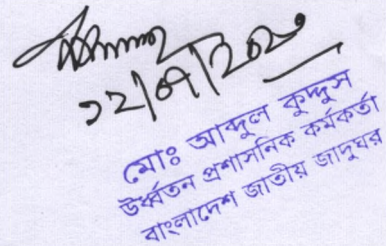 ১২/০৭/২০২০
মোঃ আব্দুল কুদ্দুস
উর্ধ্বতন প্রশাসনিক কর্মকর্তা
বাংলাদেশ জাতীয় জাদুঘর